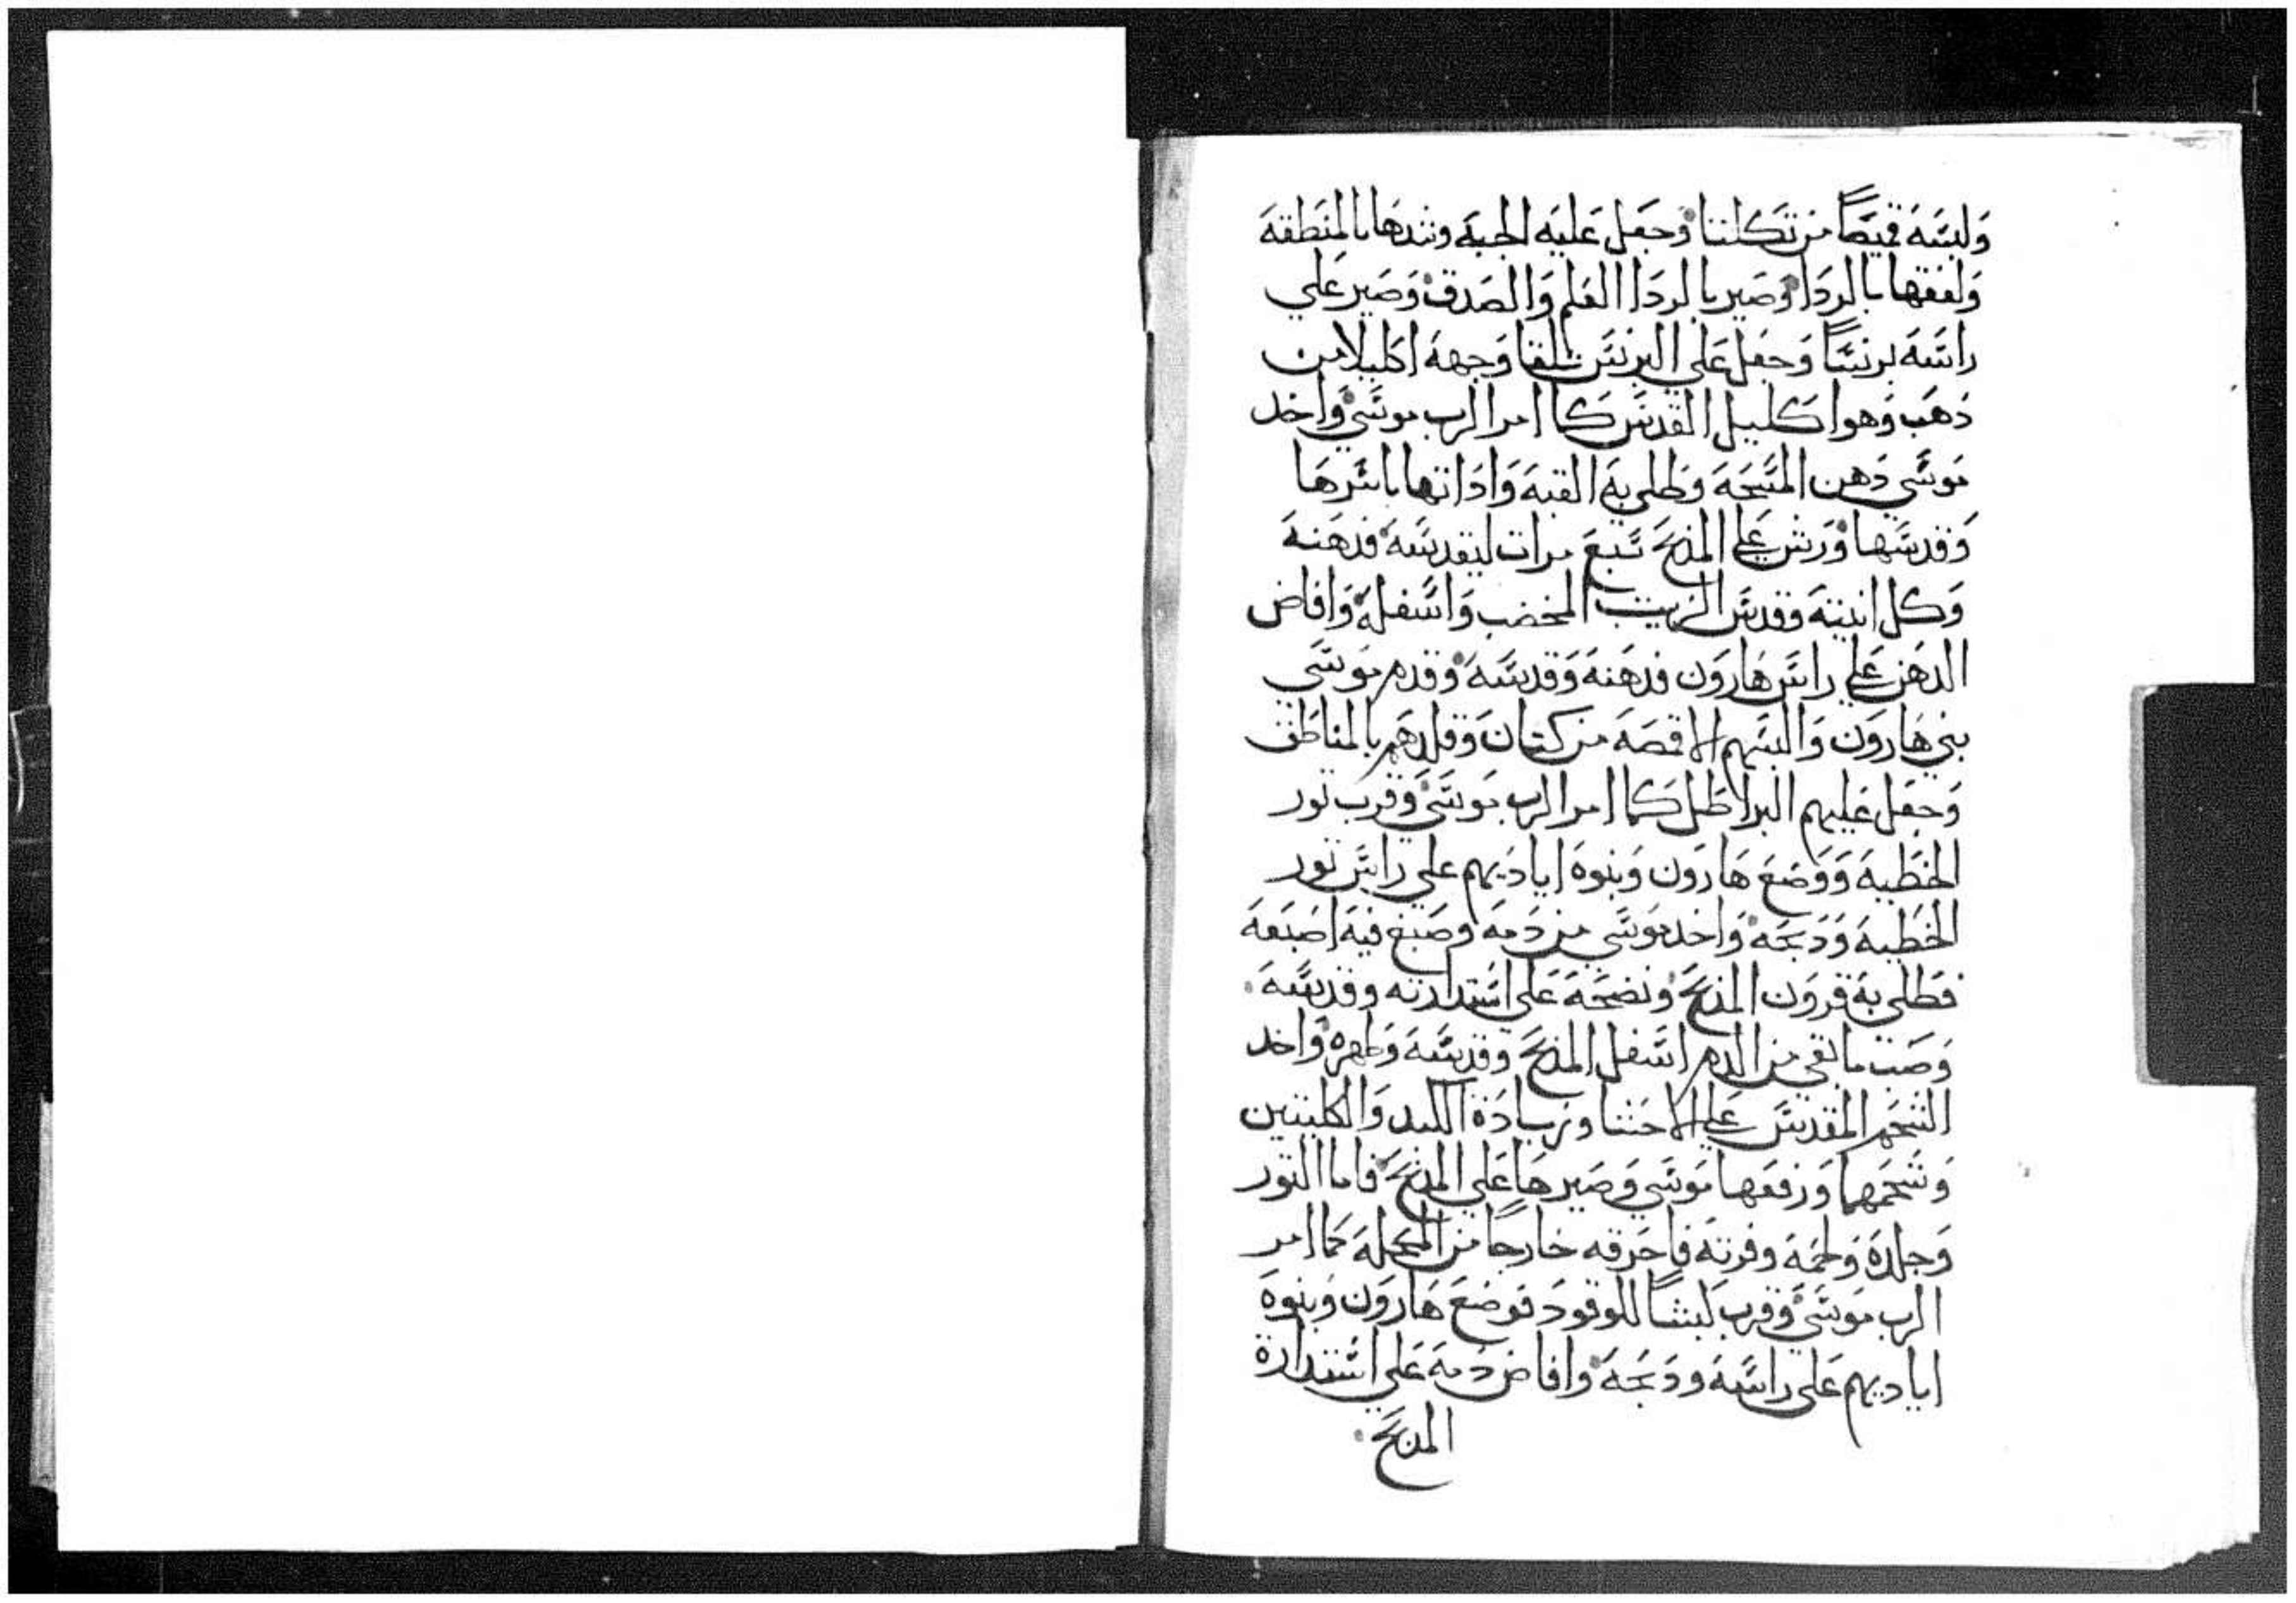 وَلبسَهَ قميصًا من تكلتنا وَجعَل عَليَه الجبهَ وشدهَا بالمنطقهَ
وَلففها بالردَا وَصير بالردَا العَلم وَالصَدق وَصير عَلي
راسَهَ برنسًا وَجعَل عَلي البرنسَ تلقا وَجههَ اكليلا من
دَهَب وَهوا كليل القدسَ كما امر الرب موسَي وَاخد
مَوسَي دَهن المسَحهَ وَطلي بهَ القبهَ وَادَاتها باسَرهَا
وَقدسَها وَرش عَلي المذبحَ سَبعَ مرات ليقدسَهَ فدهَنهَ
وَكل انيتهَ وقدسَ الزيت المخضب وَاسَفلهَ وَافاض
الدهَن عَلي راسَ هَارَون فدهَنهَ وَقدسَهَ وَقدم مَوسَي
بني هَارَون وَالبسَهم الاقمصَهَ من كتان وَقلدهَم بالمناطَق
وَجعَل عَليهم البراطَل كما امر الرب مَوسَي وَقرب تور
الخطَيهَ وَوَضعَ هَارَون وَبنوهَ اياديَهم علي راسَ تور
الخطَيهَ وَدَبحَهَ وَاخد مَوسَي من دَمهَ وصَبغ فيهَ اصَبعَهَ
فطَلي بهَ قروَن المذبحَ وَنضحَهَ عَلي اسَتدارته وقدسَهَ
وَصَب ما بقي من الدم اسَفل المذبحَ وقدسَهَ وَطهره وَاخد
الشحَم المقدسَ عَلي الاحَشا وزيادَة الكبد وَالكليتين
وَشحَمهما وَرفعَها مَوسَي وَصَيرهَا عَلي المذبحَ فاما التور
وَجلدهَ وَلحمَهَ وفرتهَ فاحَرقه خارجًا من المحَلهَ كما امر
الرب مَوسَي وَقرب كبشًا للوقودَ فوضعَ هَارَون وَبنوهَ
اياديهم عَلي راسَهَ ودَبحَهَ وَافاض دَمهَ عَلي اسَتدارة
المذبحَ